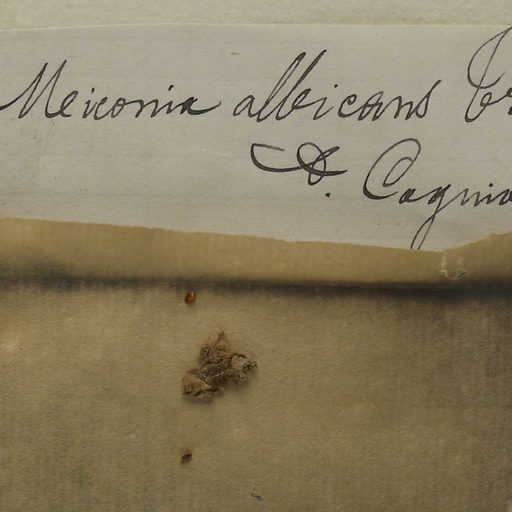 Meiconia albicans
A. Cognia